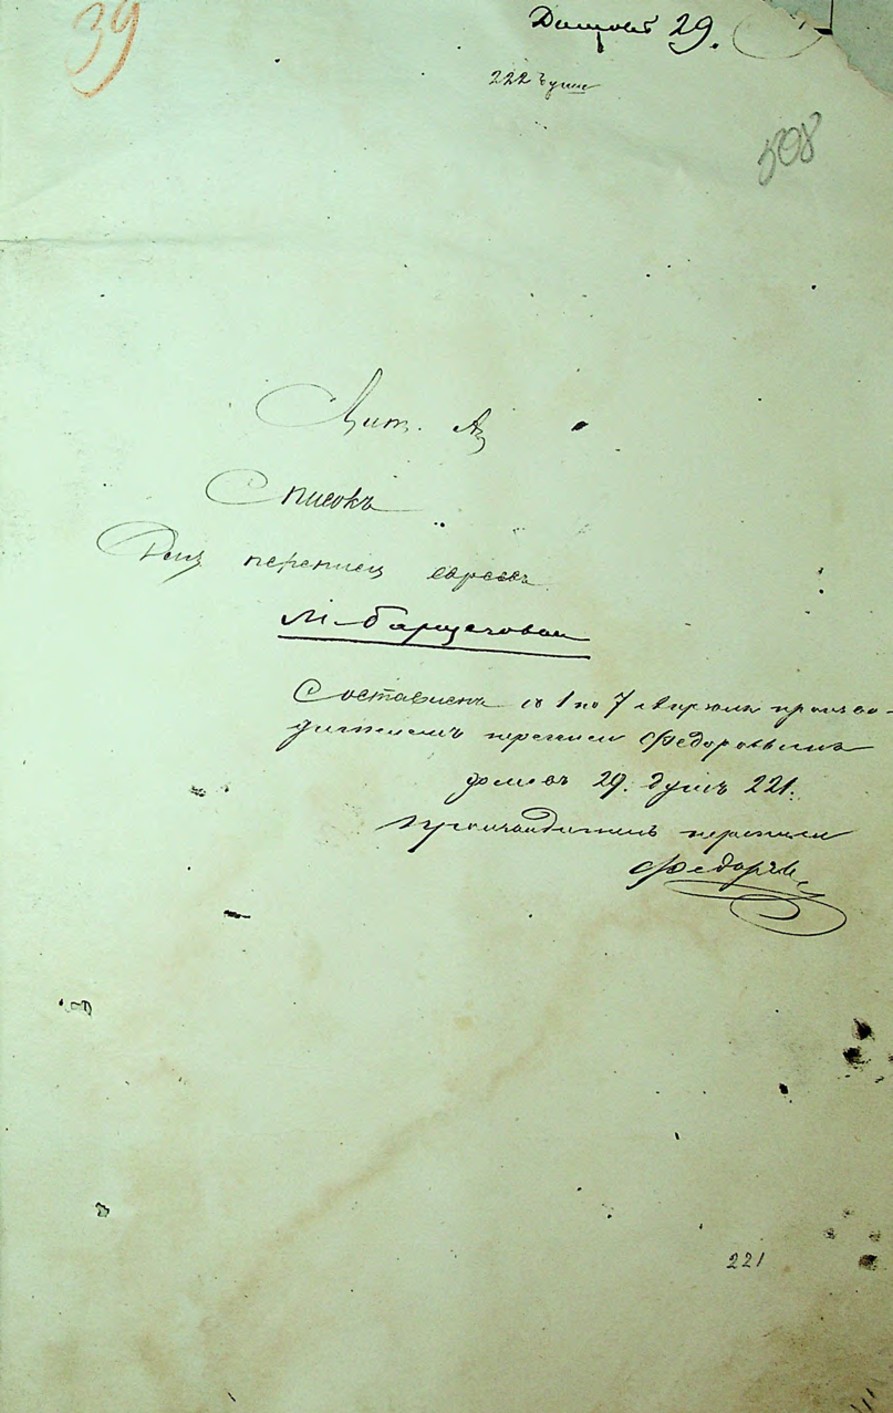 39
Домовъ 29.
222 души
508
Лит. А
Списокъ
Для переписи евреевъ
М. Борщаговки
Составленъ съ 1 по 7 апреля произво-
дителемъ переписи Федоровымъ
домовъ 29. душъ 221.
Производитель переписи
221